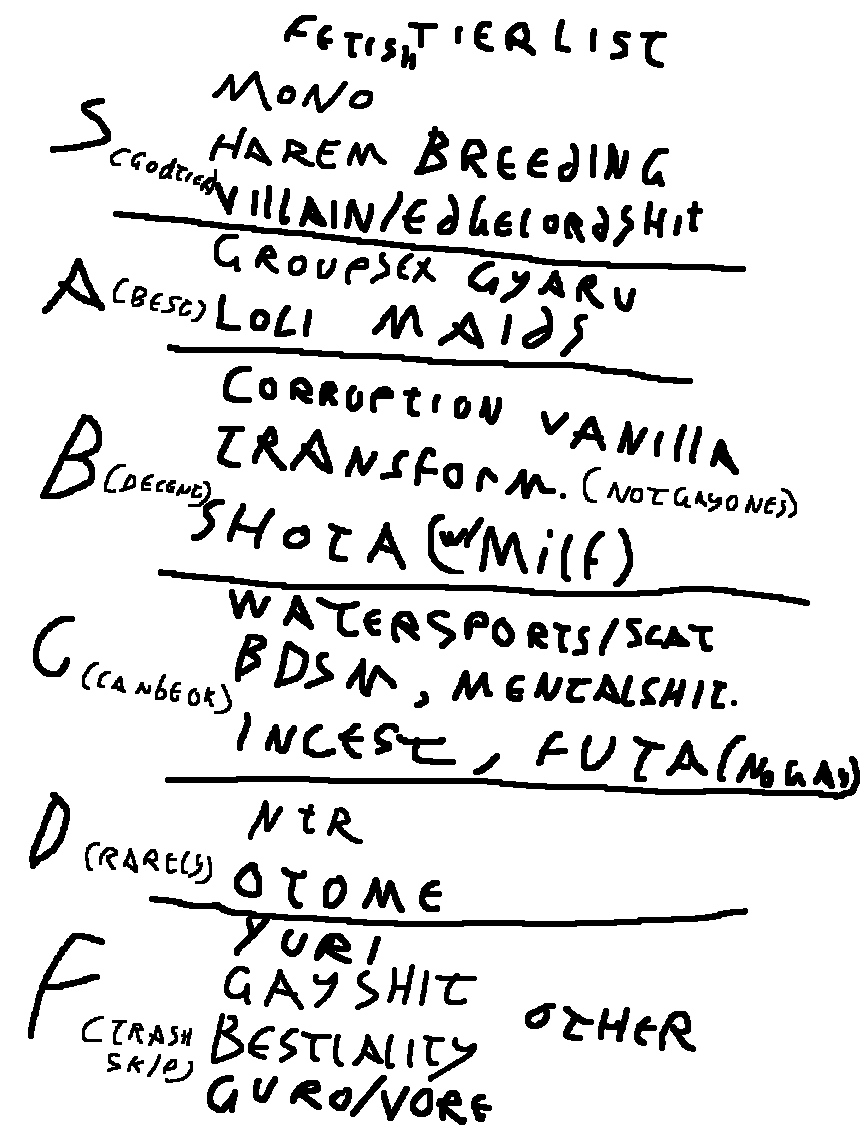 FETISH TIER LIST
MONO
S (GODTIER) HAREM BREEdING
VIllAIN/EdGElORdSHIt
GROUPSEX GYARU
A (BEST) LOLI MAIdS
CORRUPTION VANIllA
B (DECENT) TRANSfORM. (NOT GAY ONES)
SHOTA (w/ Milf)
WATERSPORTS/SCAT
C (CAN bE OK) BDSM, MENTALSHIT.
INCEST, FUTA (NO GAY)
NtR
D (RARElY) OTOME
YURI
F GAY SHIT
(TRASH BESTIALITY OTHER
SKIP) GURO/VORE